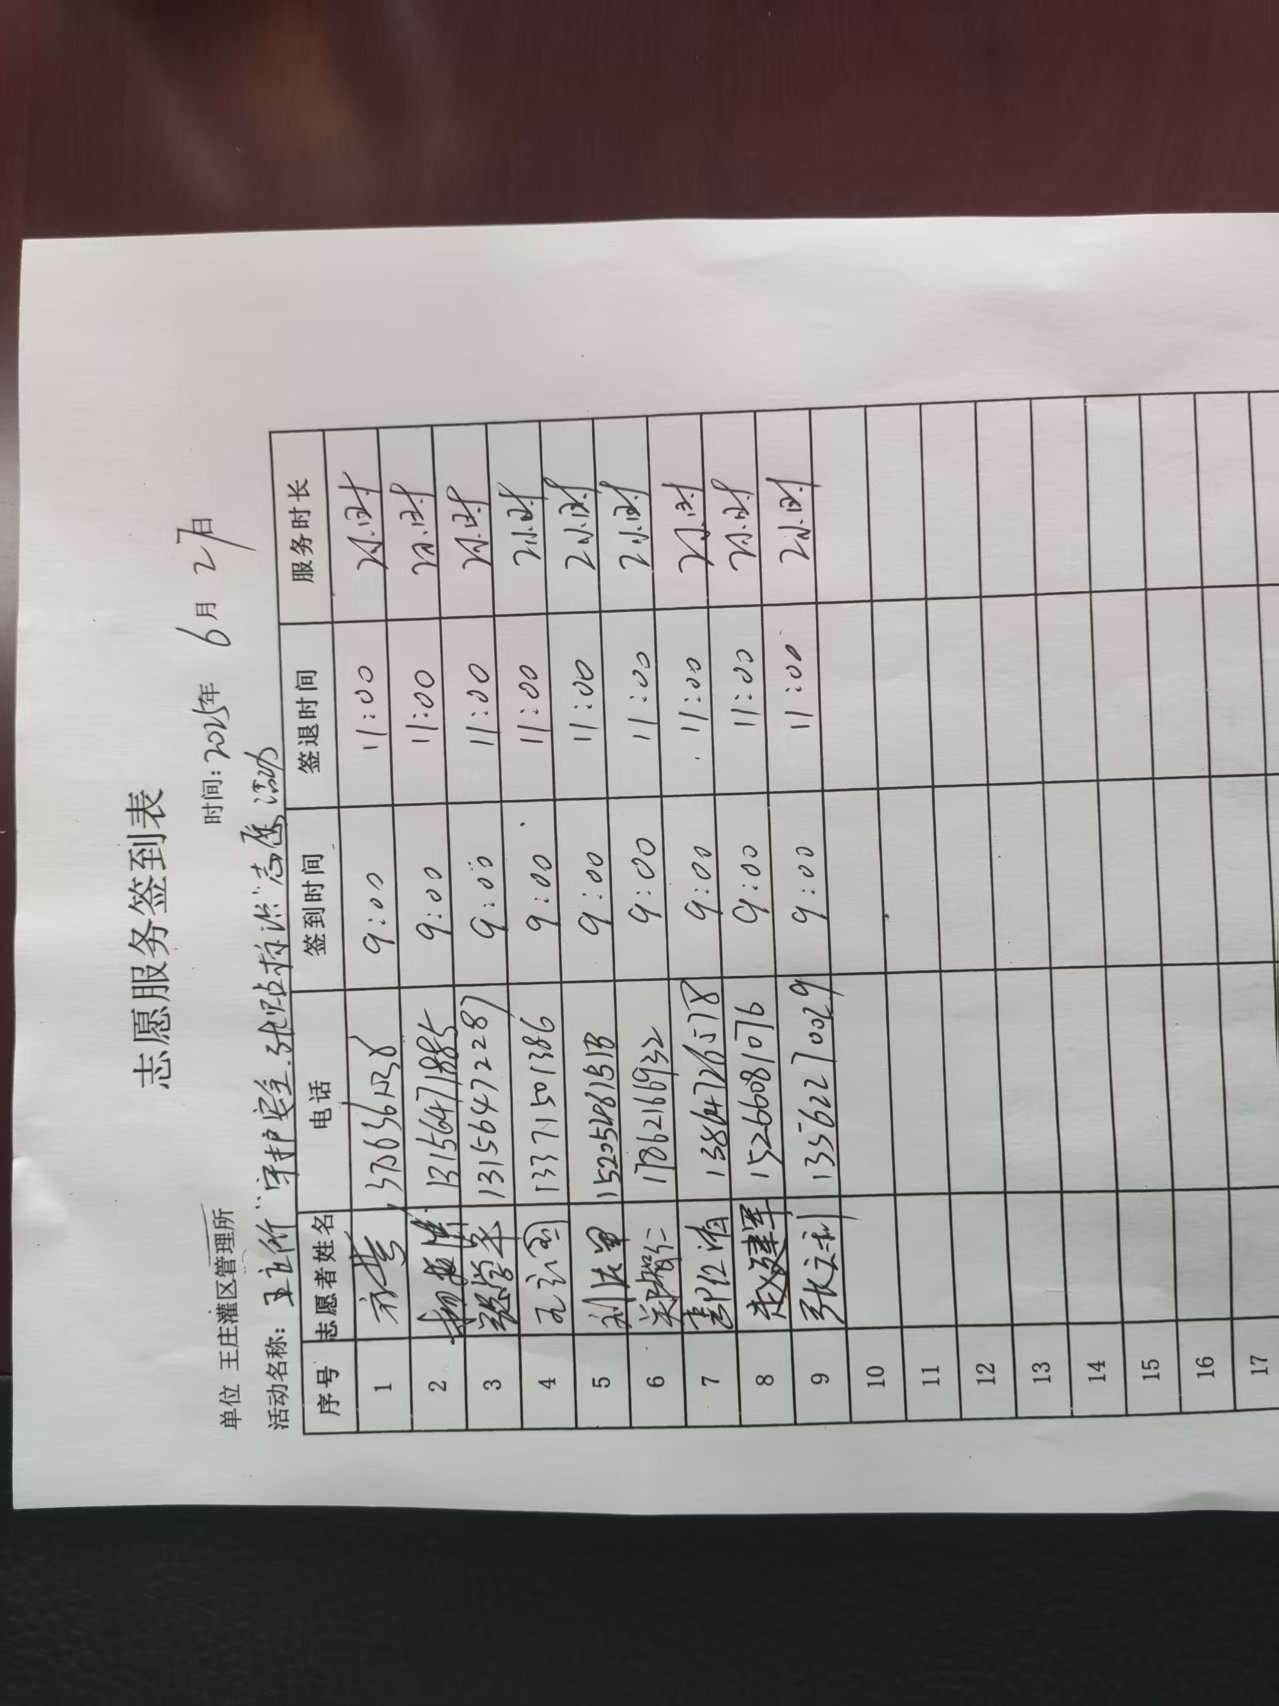 志愿服务签到表
时间：2025年 6月 27日
单位 王庄灌区管理所
活动名称： "守护安全.张贴标识"志愿活动
序号 志愿者姓名 电话 签到时间 签退时间 服务时长
1 9:00 11:00 2小时
2 13156471885 9:00 11:00 2小时
3 13156472287 9:00 11:00 2小时
4 13371501386 9:00 11:00 2小时
5 9:00 11:00 2小时
6 17862166932 9:00 11:00 2小时
7 13864726578 9:00 11:00 2小时
8 赵建军 15266081076 9:00 11:00 2小时
9 张立利 13562270029 9:00 11:00 2小时
10
11
12
13
14
15
16
17